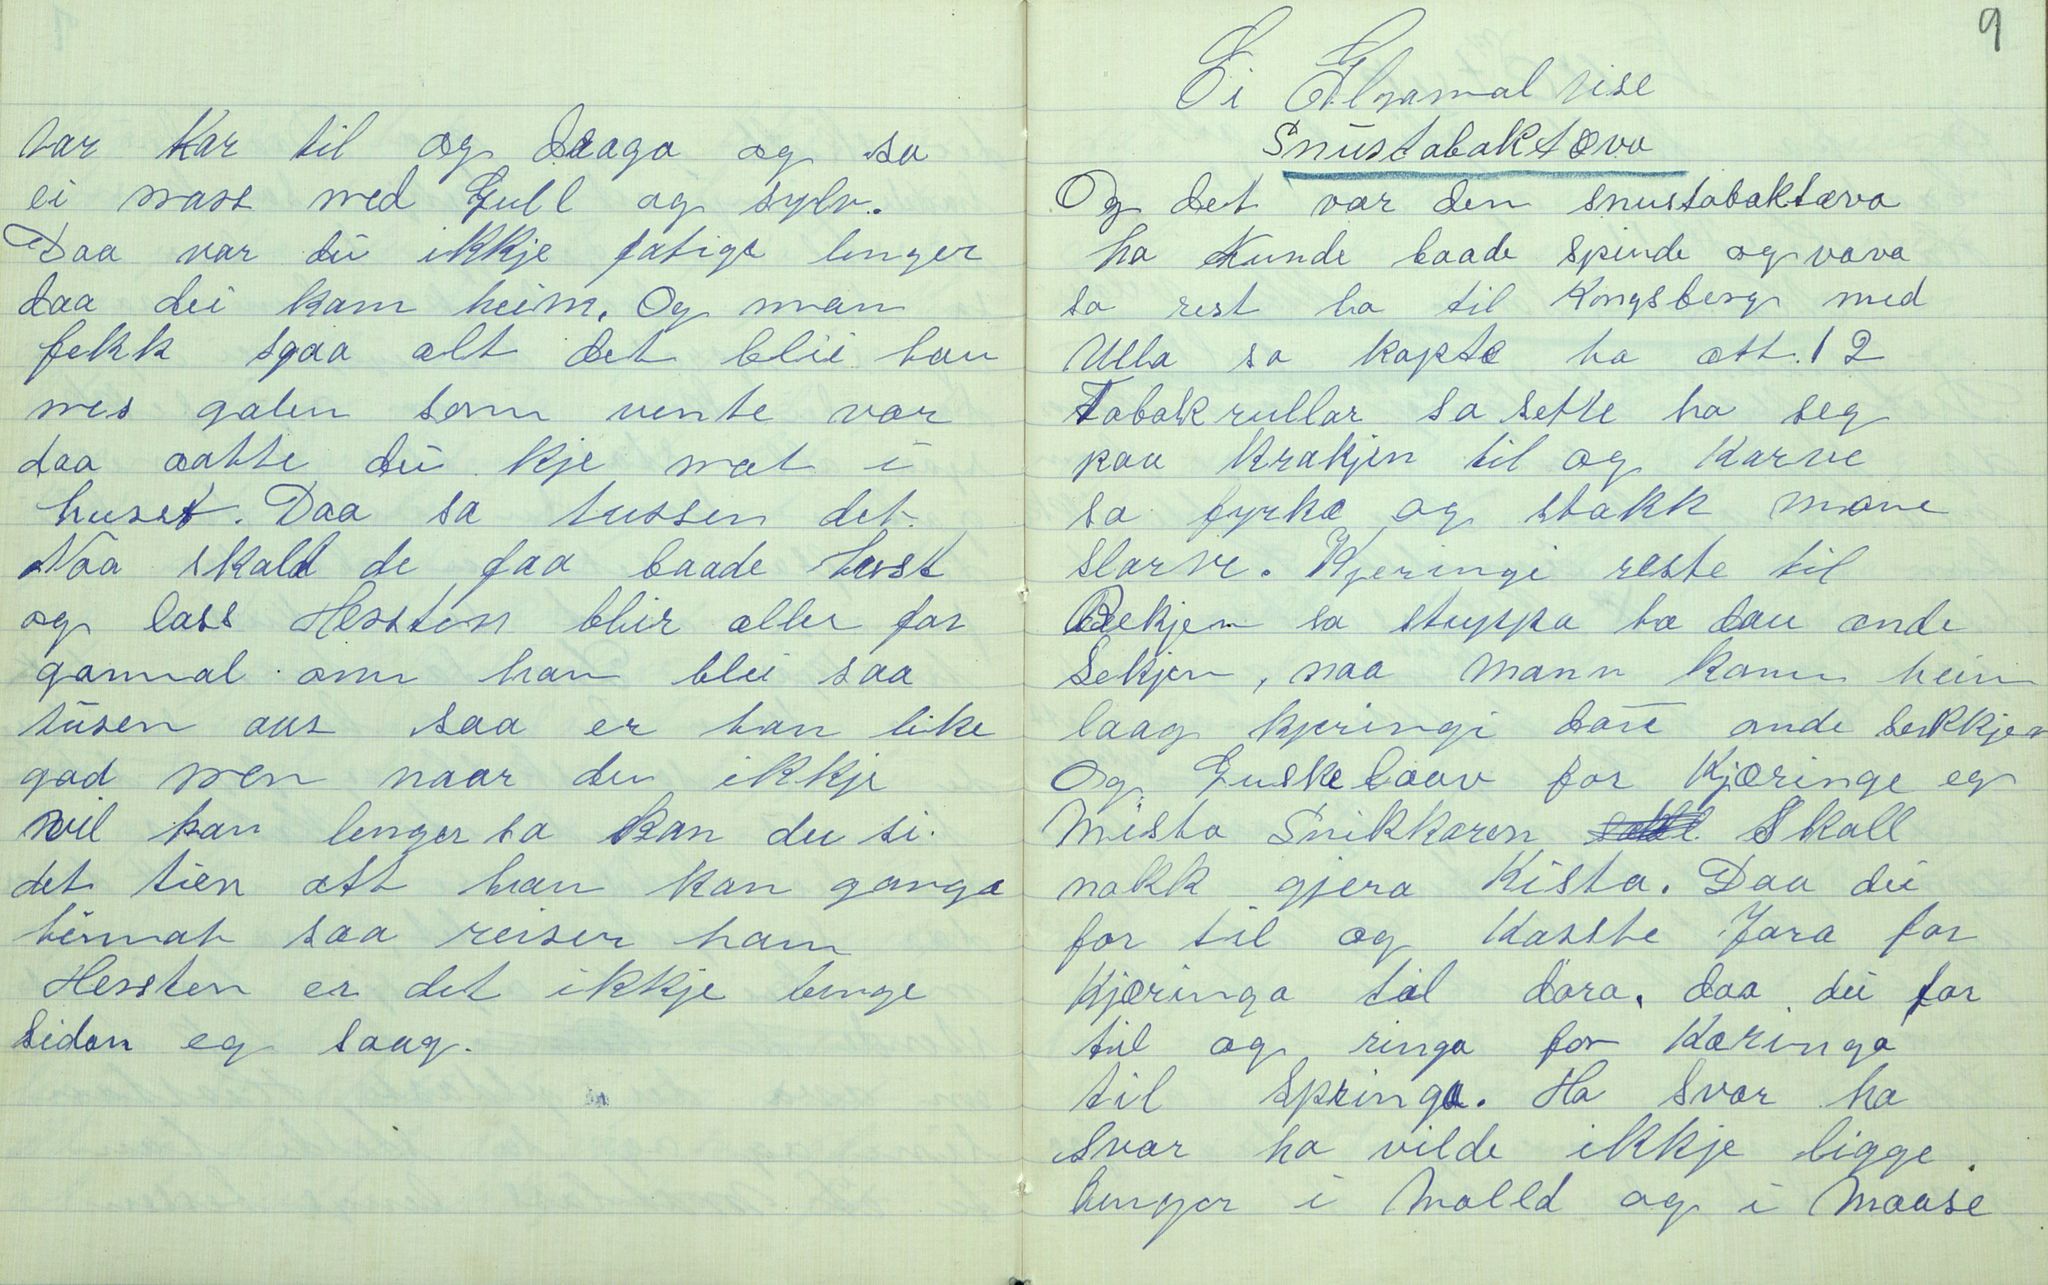 var kar til og daaga og sa
ei mass med Gull og sylv.
Daa var di ikkje fatige lenger
daa dei kam heim. Og man
fekk sjaa alt det blei han
mes galen som vente var
daa aatte di kje mat i
huset. Daa sa tussen det.
Naa skald de faa baade hest
og lass Hessten blir aller for
gammal om han blei saa
tusen aar saa er han like
god men naar du ikkje
vil han lenger sa kan du si
det tien att han kan ganga
heimat saa reiser han
Hessten er det ikkje lenge
sidan eg saag.
9
Ei Elgamal vise
Snustabaktæva
Og det var den snustabaktæva
ha kunde baade spinde og vava
so rest ha til Kongsberg med
Ulla so kopte ha att. 12
Tabakrullar so sette ha seg
paa krakjen til og karve
so fyrka og stakk mane
slarve. Kjeringi reste til
Bekjen so stuppa ha dau ande
Sekjen, naa mann kam heim
laag kjeringi dau ande sekkjen
Og Guskelaav for Kjæringe eg
Mista Snikkaren Skall
nokk gjera Kista. Daa di
for til og Kasste Jora for
Kjæringa tol dara. daa di for
til og ringa for Kæringa
til springa. Ha svor ha
svar ha vilde ikkje ligge
lenger i Molld og i Maase